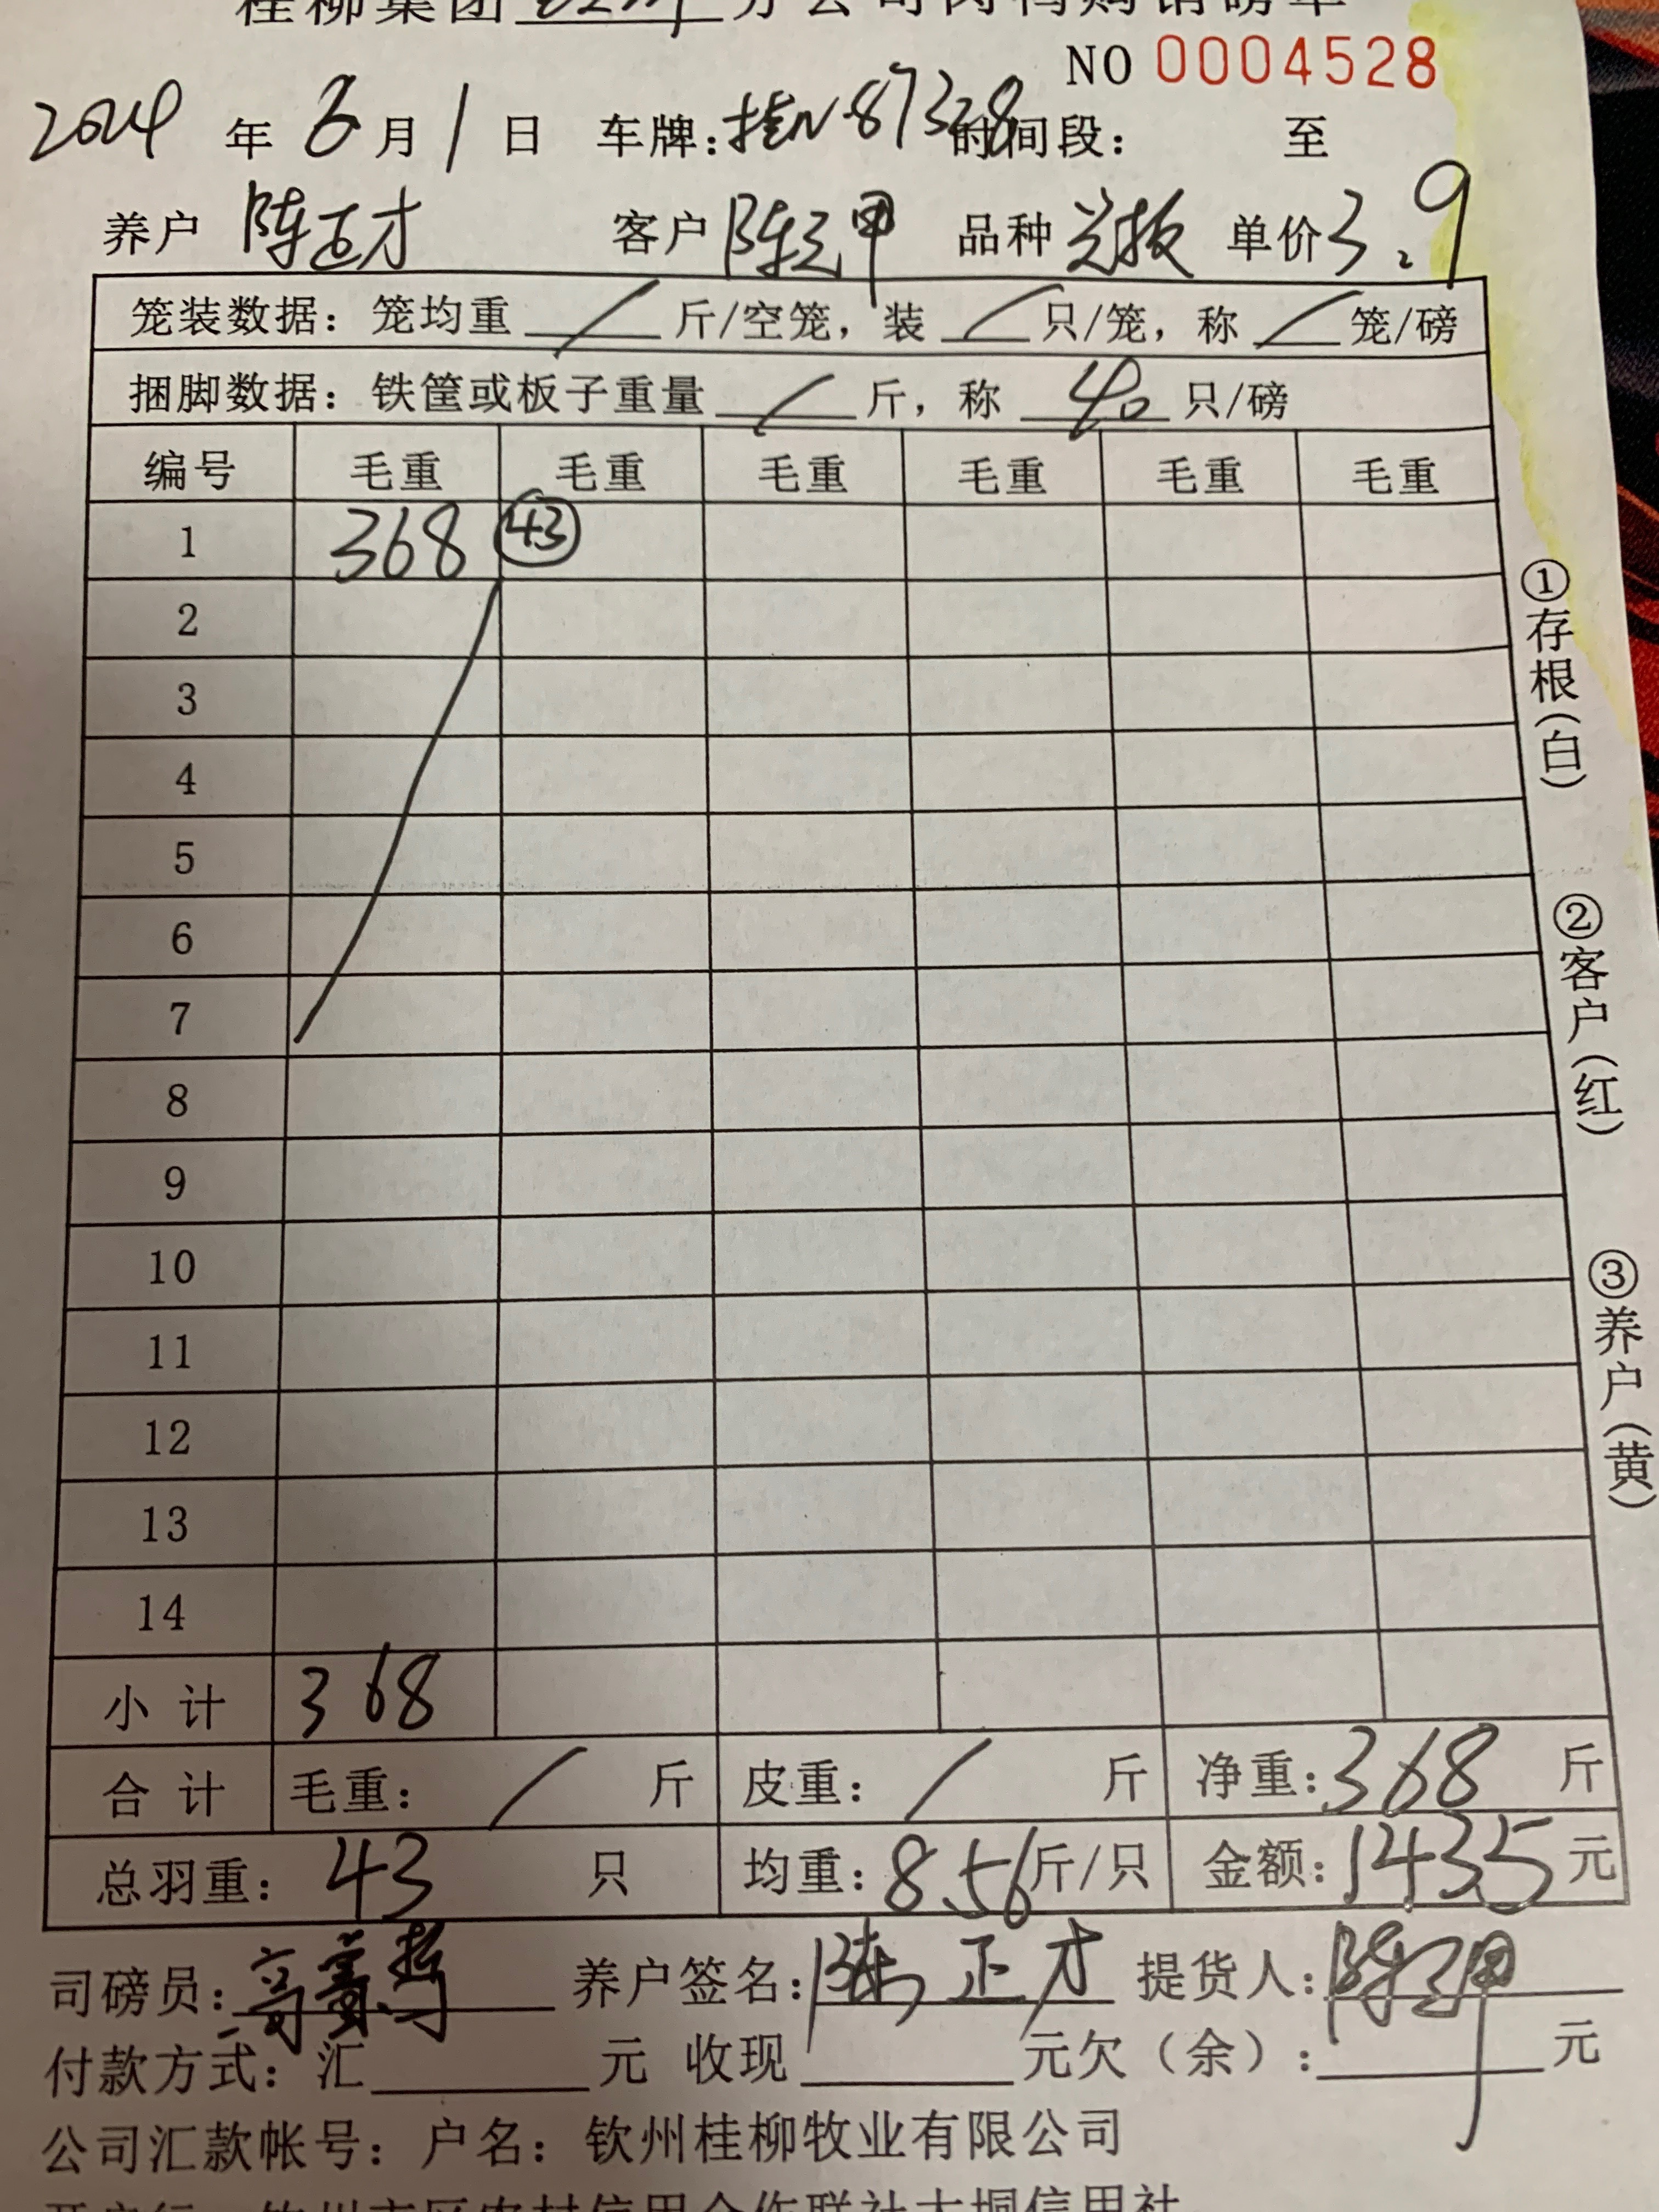 桂柳集团 分公司肉鸭购销磅单
NO 0004528
2024 年 6 月 1 日 车牌:桂N·87328 时间段: 至
养户 陈正才 客户 陈元甲 品种 单价 3.9
笼装数据: 笼均重 / 斤/空笼, 装 / 只/笼, 称 / 笼/磅
捆脚数据: 铁筐或板子重量 / 斤, 称 40 只/磅
编号 毛重 毛重 毛重 毛重 毛重 毛重
1 368 ㊸
2
3
4
5
6
7
8
9
10
11
12
13
14
小计 368
合计 毛重: / 斤 皮重: / 斤 净重: 368 斤
总羽重: 43 只 均重: 8.56 斤/只 金额: 1435 元
司磅员: 养户签名: 陈正才 提货人: 陈元甲
付款方式: 汇 元 收现 元欠(余): 元
公司汇款帐号: 户名: 钦州桂柳牧业有限公司
①存根(白)
②客户(红)
③养户(黄)